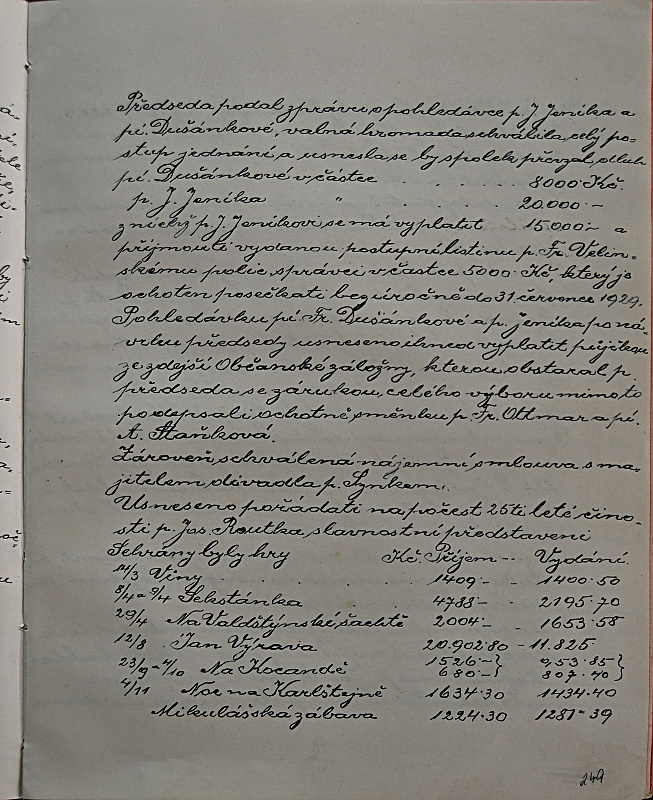 Předseda podal zprávu o pohledávce p. J. Jeníka a
pí. Dušánkové, valná hromada schválila celý po-
stup jednání, a usnesla se by spolek převzal dluh
pí. Dušánkové v částce . . . . . . 8000 Kč.
p. J. Jeníka " . . . 20.000 -
z nichž p. J. Jeníkovi se má vyplatit 15.000 - a
přijmouti vydanou postupní listinu p. Fr. Velin-
skému polic. správci v částce 5000 Kč, který je
ochoten posečkati bezúročně do 31. července 1929.
Pohledávku pí. Fr. Dušánkové a p. Jeníka po ná-
vrhu předsedy usneseno ihned vyplatit půjčkou
ze zdejší Občanské záložny, kterou obstaral p.
předseda se zárukou celého výboru mimo to
podepsali ochotně směnku p. Fr. Ottmar a pí.
A. Staňková.
Zároveň schválená nájemní smlouva s ma-
jitelem divadla p. Synkem.
Usneseno pořádati na počest 25ti leté čino-
sti p. Jos. Routka, slavnostní představení
Sehrány byly hry Kč. Příjem - Vydání.
14/3 Viny . . . 1409 - - 1400.50
8/4 a 9/4 Sekstánka 4788 - - 2195.70
29/4 Na Valdštýnské šachtě 2004 - - 1653.58
12/8 Jan Výrava 20.902.80 - 11.825.
23/9 a 4/10 Na Kocandě 1526 - } 953.85 }
680 - } 807.40 }
4/11 Noc na Karlštejně 1634.30 1434.40
Mikulášská zábava 1224.30 1287.39
249